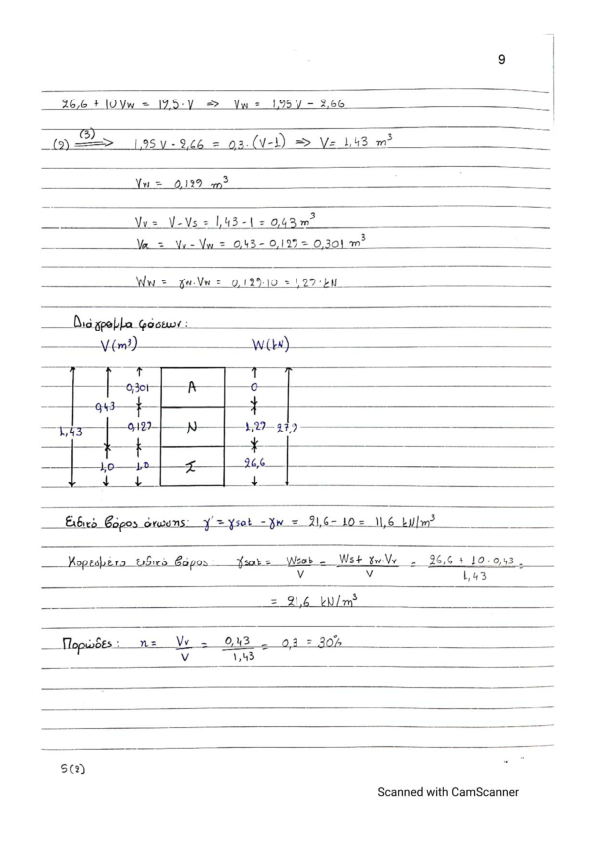 9
26,6 + 10 Vw = 19,5 · V => Vw = 1,95 V - 2,66
(2) (3)=> 1,95 V - 2,66 = 0,3 · (V-1) => V = 1,43 m³
Vw = 0,129 m³
Vv = V - Vs = 1,43 - 1 = 0,43 m³
Va = Vv - Vw = 0,43 - 0,129 = 0,301 m³
Ww = γw·Vw = 0,129·10 = 1,29 kN
Διάγραμμα φάσεων:
V(m³) W(kN)
0,301 A 0
0,43
1,43 0,129 N 1,29 27,9
1,0 1,0 Σ 26,6
Ειδικό βάρος άνωσης: γ' = γsat - γw = 21,6 - 10 = 11,6 kN/m³
Κορεσμένο ειδικό βάρος: γsat = Wsat/V = Ws + γw Vv/V = 26,6 + 10·0,43/1,43 =
= 21,6 kN/m³
Πορώδες: n = Vv/V = 0,43/1,43 = 0,3 = 30%
5(2)
Scanned with CamScanner